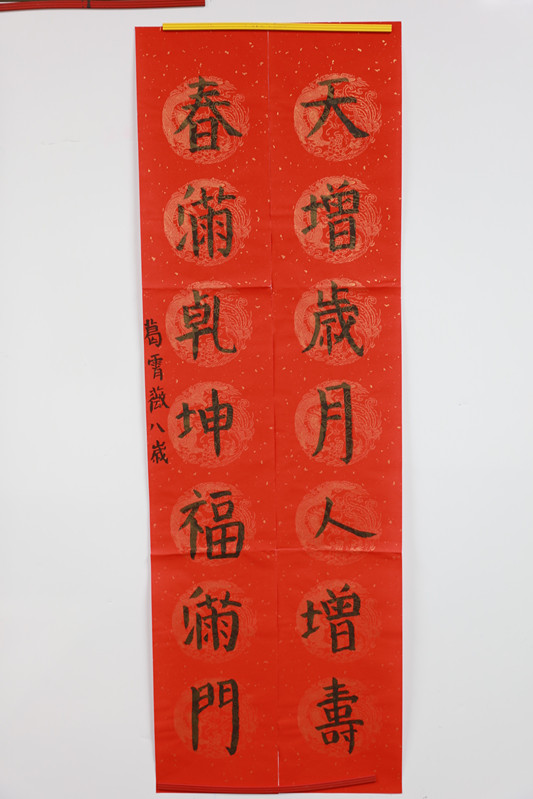 天增歲月人增壽
春滿乾坤福滿門
葛霄薇八歲